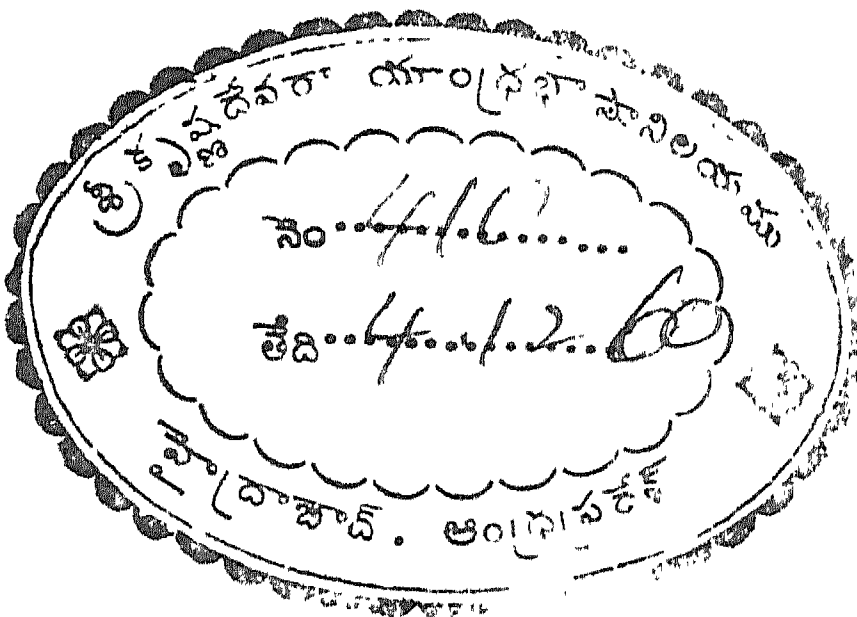 శ్రీ కృష్ణదేవరా యాంధ్రభాషానిలయము
నెం 416
తేది 4.12.60
హైద్రాబాద్. ఆంధ్రప్రదేశ్